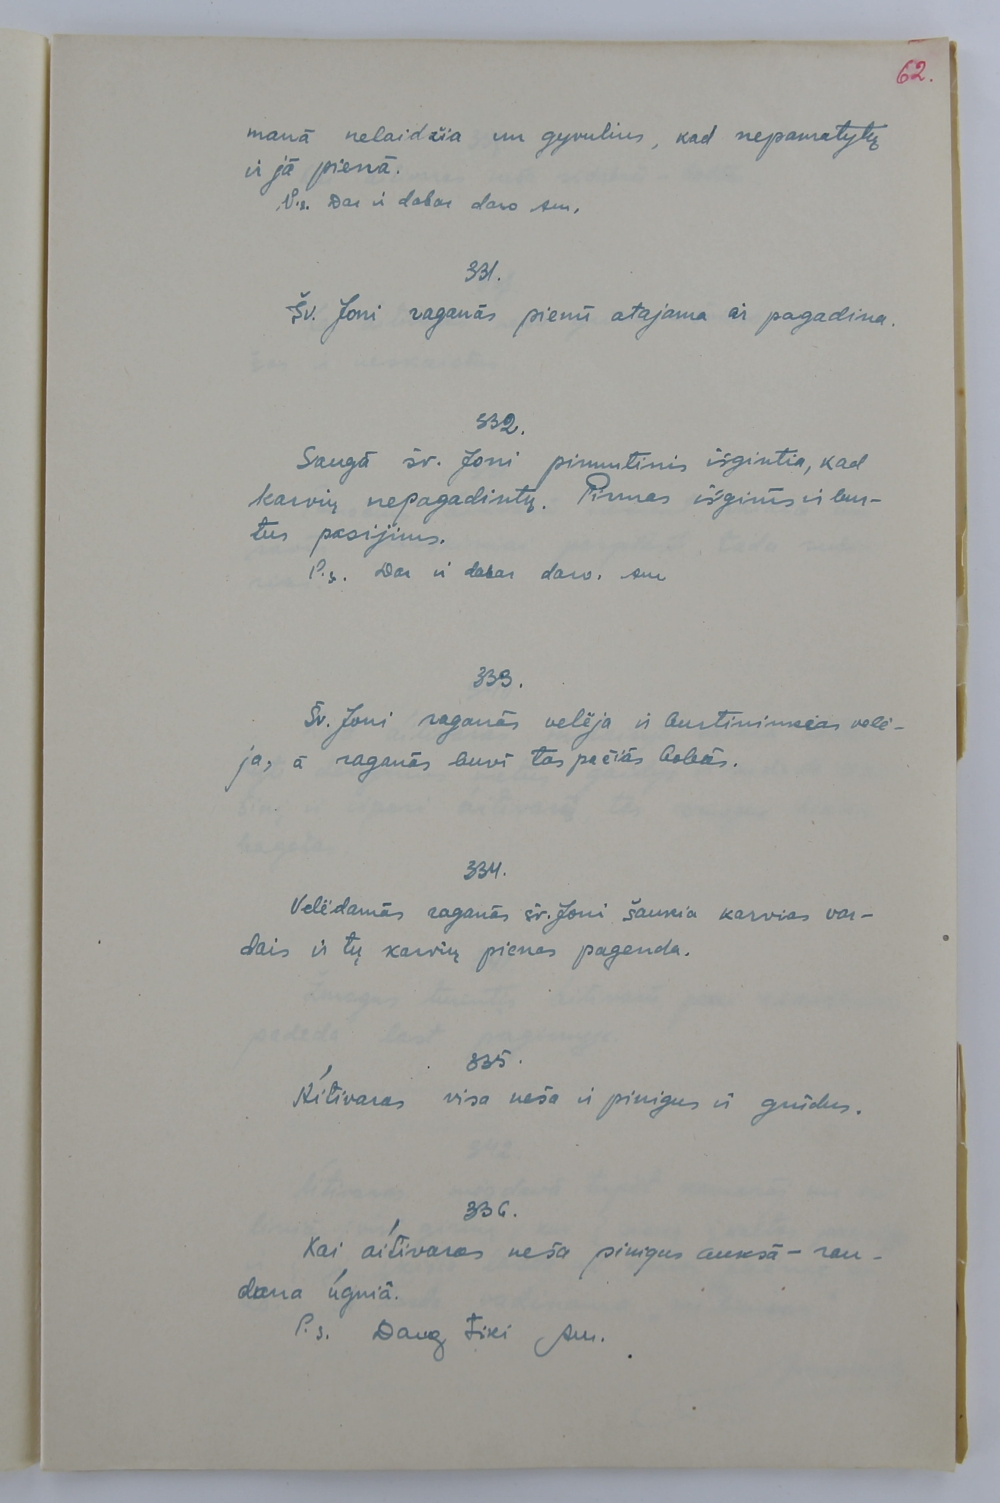 62.
manā nelaidžia un gyvulius, kad nepamatytų
ir jā pienā.
P.s. Dar ir dabar daro Am.
331.
Šv. Joni raganās pienū atajama ir pagadina.
332.
Saugā šv. Joni pirmutinis išgintia, kad
karvių nepagadintų. Pirmas išginūs ir bur-
tus pasijims.
P.s. Dar ir dabar daro. Am
333.
Šv. Joni raganās velėja ir burtininkas velė-
ja, ā raganās buvi tās pačiās bobās.
334.
Velėdamās raganās šv. Joni šaukia karvias var-
dais ir tų karvių pienas pagenda.
335.
Aítivaras visa neša ir pinigus ir grūdus.
336.
Kai aítivaras neša pinigus auksā – rau-
dona úgniā.
P.s. Daug tiki Am.